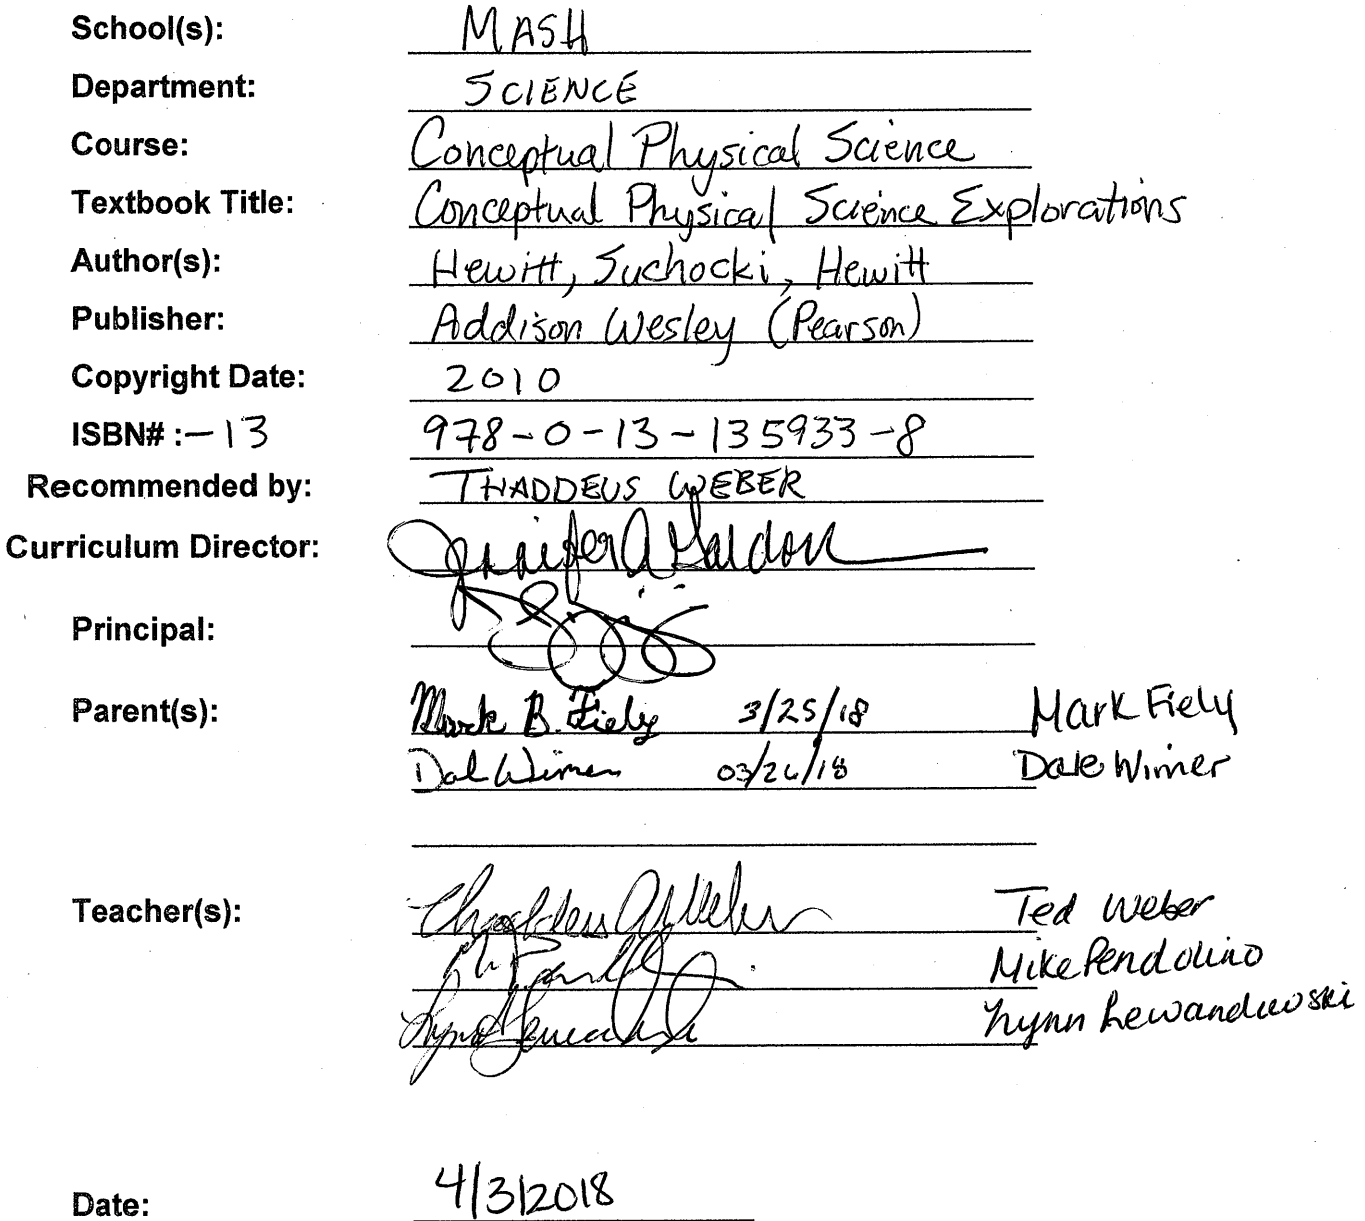 School(s): MASH
Department: SCIENCE
Course: Conceptual Physical Science
Textbook Title: Conceptual Physical Science Explorations
Author(s): Hewitt, Suchocki, Hewitt
Publisher: Addison Wesley (Pearson)
Copyright Date: 2010
ISBN# :-13 978-0-13-135933-8
Recommended by: THADDEUS WEBER
Curriculum Director: Jennifer A
Principal:
Parent(s): Mark B. Fiely 3/25/18 Mark Fiely
Dale Wimer 03/26/18 Dale Wimer
Teacher(s): Thaddeus A Weber Ted Weber
Mike Pendolino
Lynn Lewandowski Lynn Lewandowski
Date: 4/3/2018